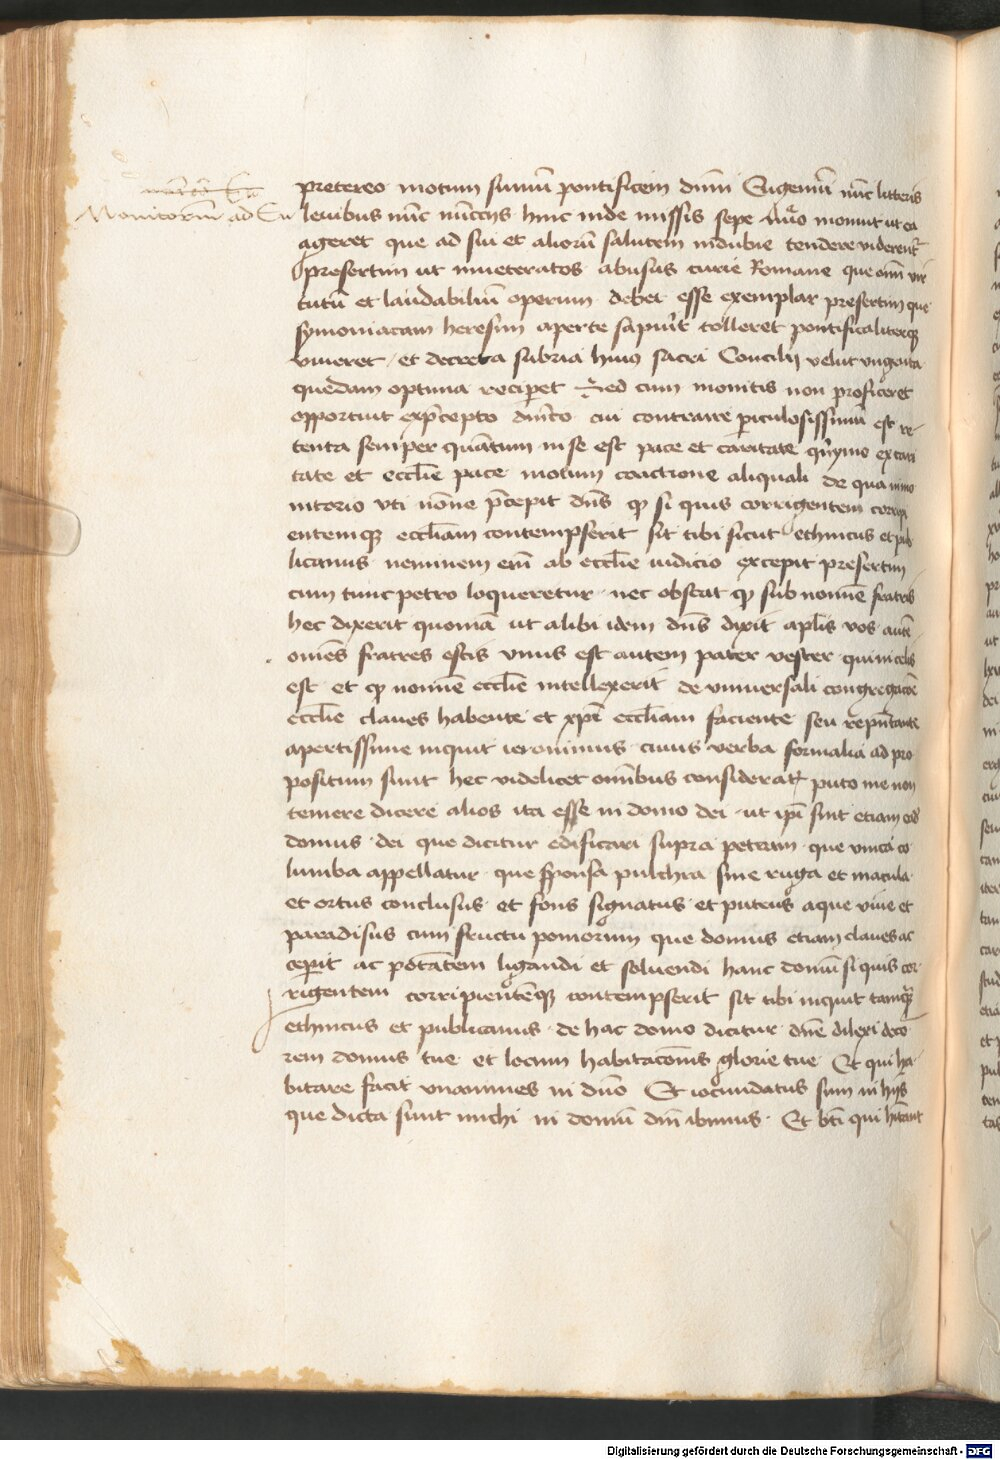 Monitoriũ ad Eu
pretereo motum sum̄u pontificem dnm̄ Eugeniũ nũc litteris
leuibus nũc nũccys hinc inde missis sepe monuit ut ea
ageret que ad sui et aliorũ salutem indubie tendere viderent᷑
presertim ut inueteratos abusus curie Romane que oīm vir
tutũ et laudabiliũ operum debet esse exemplar presertim que
symoniacam heresim aperte sapiũt tolleret pontificaliterqꝫ
viueret et decreta sacri Concilij velut vngenta
quedam optima recip̱et Sed cum monitis non proficeret
opportuit exp̃cepto diuĩo cui contraire ꝑiculosissimũ est re
tenta semper quãtum in se est pace et caritate qũymo ex cari
tate et ecclīe pace motum coactione aliquali de qua mino
nitorio vti nōne p̃cepit dn̄s ꝙ si quis corrigentem corripi
entemqꝫ eccl̄iam contempserit sit tibi sicut ethnicus et pub
licanus neminem enī ab ecclīe iudicio excepit presertim
cum tunc petro loqueretur nec obstat ꝙ sub nomīe fratris
hec dixerit quoniã ut alibi idem dn̄s dixit apl̄is vos autē
om̄es fratres estis vnus est autem pater vester qui in celis
est et ꝙ nomīe ecclīe intellexerit de vniuersali congregacōe
ecclīe claues habente et xp̄i eccl̄iam faciente seu rep̃ntante
apertissime inquit ieronimus cuius verba formalia ad pro
positum sunt hec videlicet om̄ibus consideratꝭ puto me non
temere dicere alios ita esse in domo dei ut ip̄i sint etiam ead̄
domus dei que dicitur edificari supra petram que vnica co
lumba appellatur que sponsa pulchra sine ruga et macula
et ortus conclusus et fons signatus et puteus aque viue et
paradisus cum fructu pomorum que domus etiam claues ac
cepit ac potãtem ligandi et soluendi hanc domũ si quis cor
rigentem corripientēqꝫ contempserit sit tibi inquit tamqꝫ
ethnicus et publicanus de hac domo dicitur dn̄e dilexi deco
rem domus tue et locum habitacōnis glorie tue Et qui ha
bitare facit vnanimes in dm̄o Et iocundatus sum in hijs
que dicta sunt michi in domũ dn̄i ibimus Et bt̄i qui hĩtant
Digitalisierung gefördert durch die Deutsche Forschungsgemeinschaft - DFG